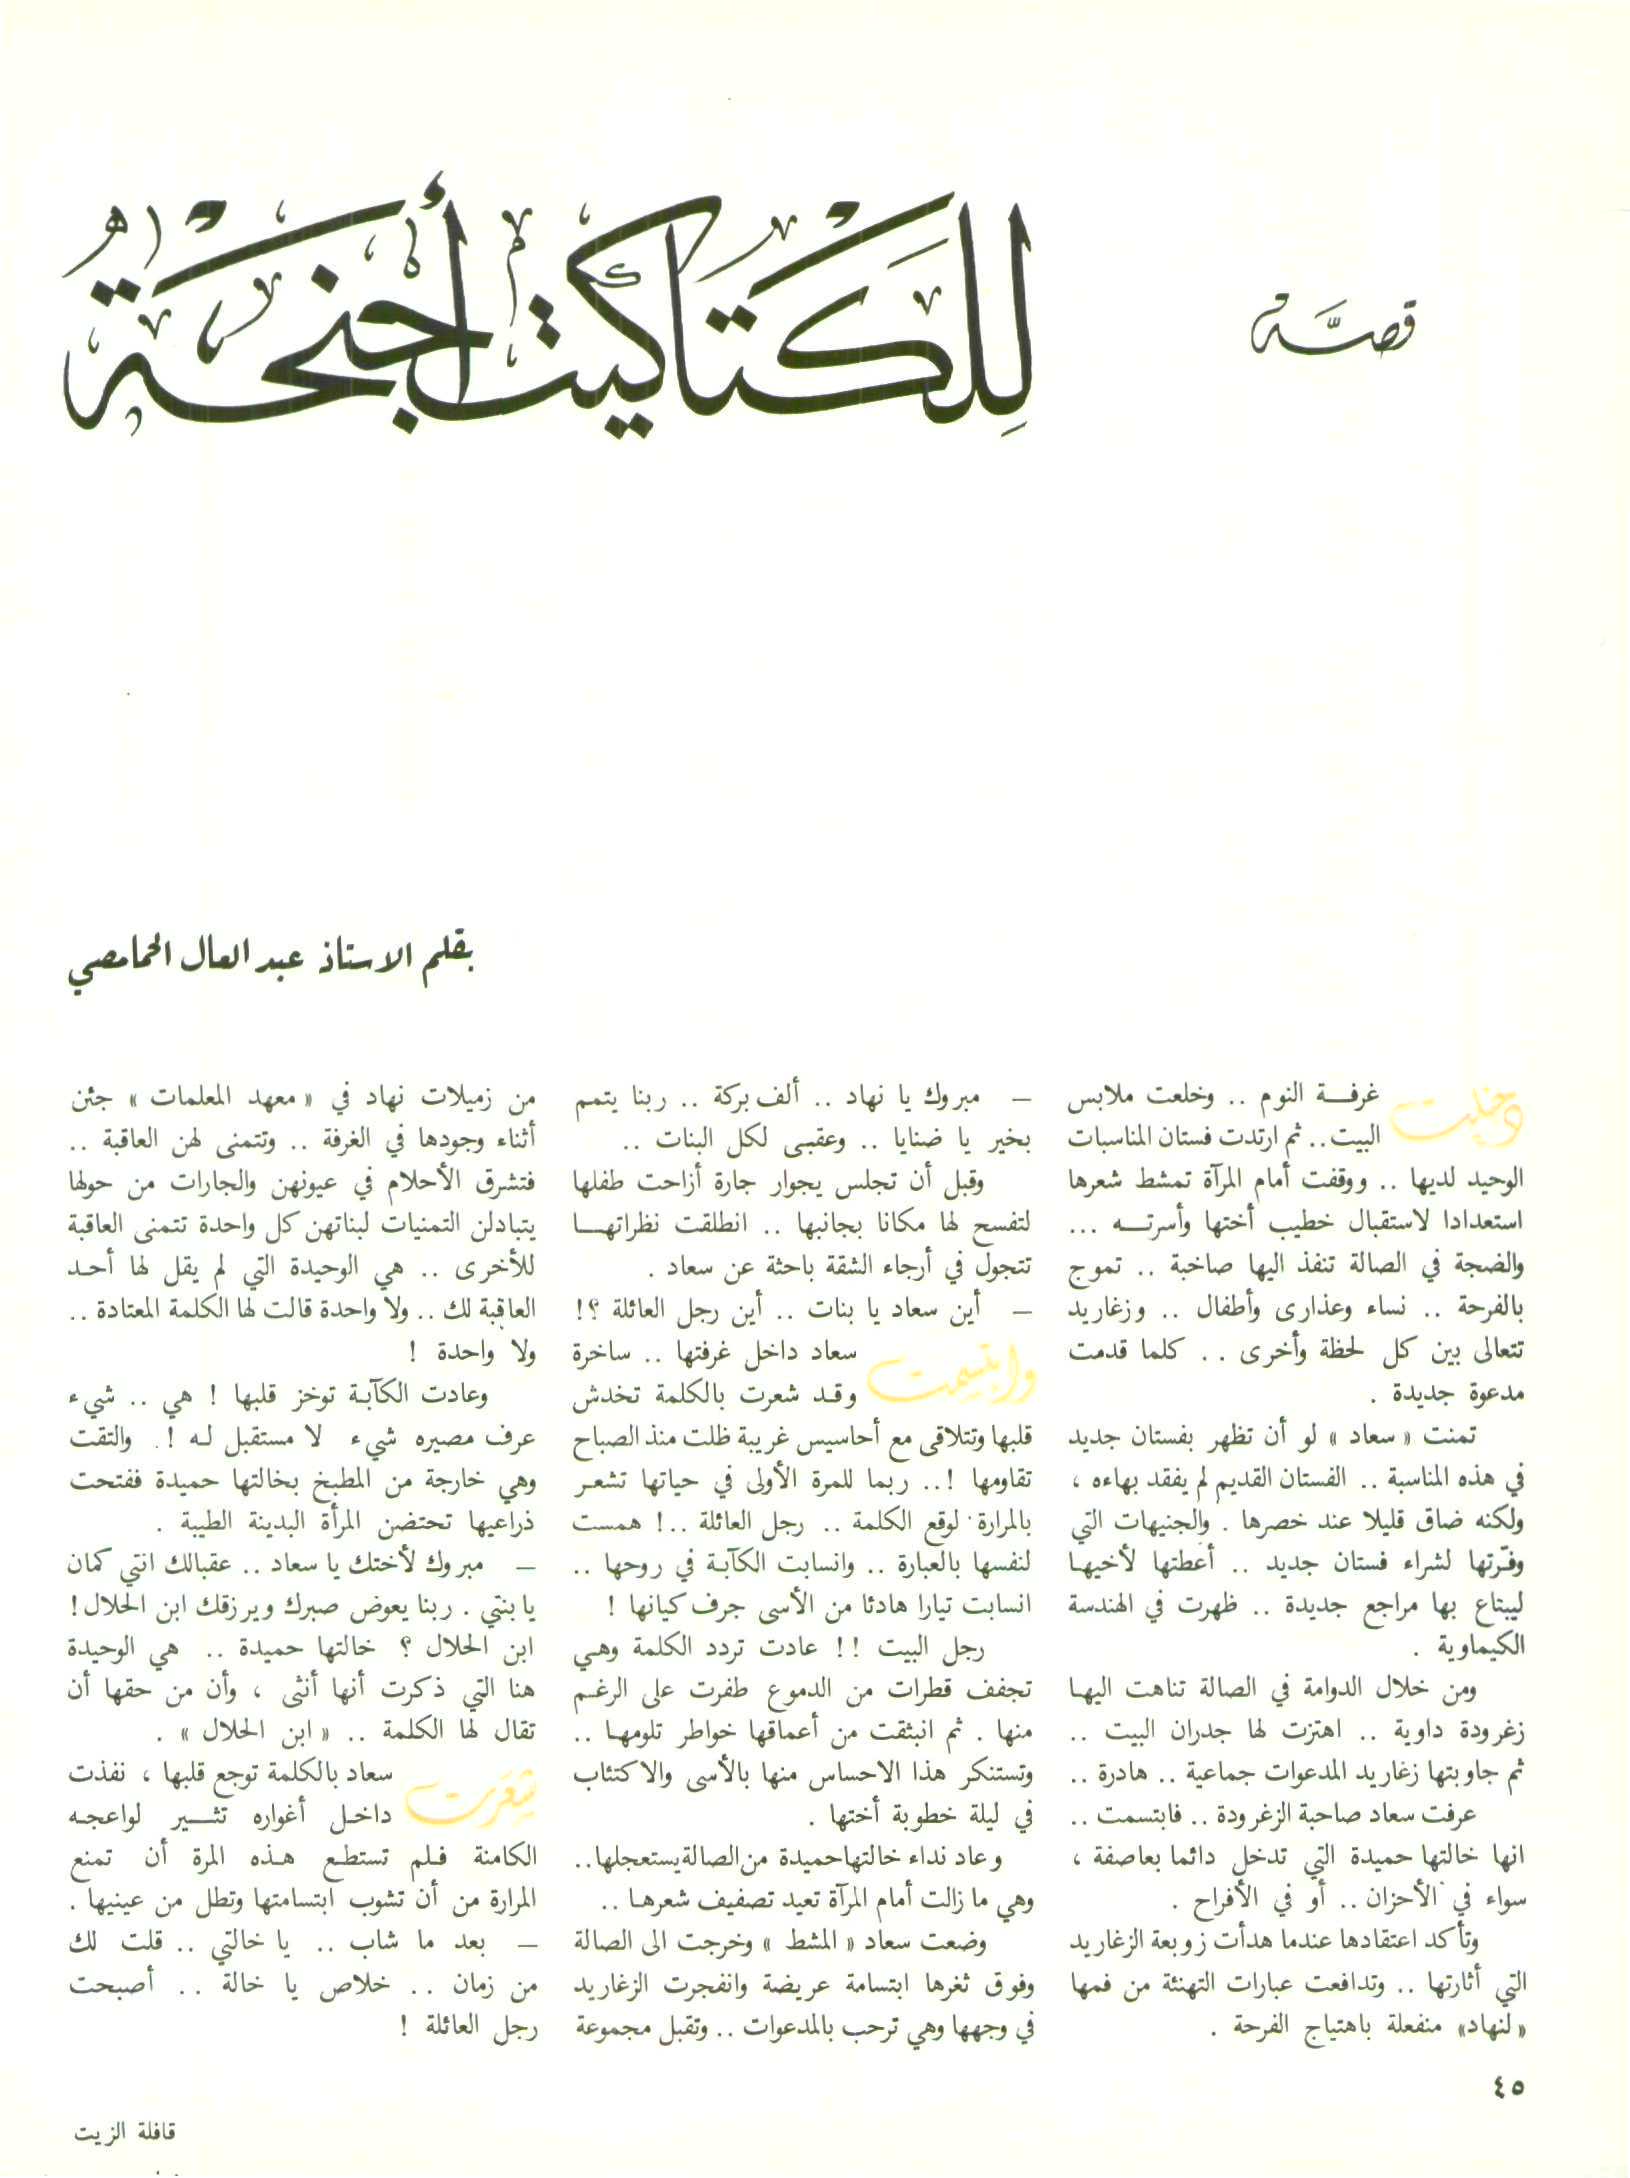 قصة
للكتاكيت أجنحة
بقلم الاستاذ عبد العال الحمامصي
دخلت غرفة النوم .. وخلعت ملابس
البيت .. ثم ارتدت فستان المناسبات
الوحيد لديها .. ووقفت أمام المرآة تمشط شعرها
استعدادا لاستقبال خطيب أختها وأسرته ...
والضجة في الصالة تنفذ اليها صاخبة .. تموج
بالفرحة .. نساء وعذارى وأطفال .. وزغاريد
تتعالى بين كل لحظة وأخرى .. كلما قدمت
مدعوة جديدة .
تمنت « سعاد » لو أن تظهر بفستان جديد
في هذه المناسبة .. الفستان القديم لم يفقد بهاءه ،
ولكنه ضاق قليلا عند خصرها . والجنيهات التي
وفّرتها لشراء فستان جديد .. أعطتها لأخيها
ليبتاع بها مراجع جديدة .. ظهرت في الهندسة
الكيماوية .
ومن خلال الدوامة في الصالة تناهت اليها
زغرودة داوية .. اهتزت لها جدران البيت ..
ثم جاوبتها زغاريد المدعوات جماعية .. هادرة ..
عرفت سعاد صاحبة الزغرودة .. فابتسمت ..
انها خالتها حميدة التي تدخل دائما بعاصفة ،
سواء في الأحزان .. أو في الأفراح .
وتأكد اعتقادها عندما هدأت زوبعة الزغاريد
التي أثارتها .. وتدافعت عبارات التهنئة من فمها
« لنهاد » منفعلة باهتياج الفرحة .
— مبروك يا نهاد .. ألف بركة .. ربنا يتمم
بخير يا ضنايا .. وعقبى لكل البنات ..
وقبل أن تجلس بجوار جارة أزاحت طفلها
لتفسح لها مكانا بجانبها .. انطلقت نظراتها
تتجول في أرجاء الشقة باحثة عن سعاد .
— أين سعاد يا بنات .. أين رجل العائلة ؟!
وابتسمت سعاد داخل غرفتها .. ساخرة
وقد شعرت بالكلمة تخدش
قلبها وتتلاقى مع أحاسيس غريبة ظلت منذ الصباح
تقاومها !.. ربما للمرة الأولى في حياتها تشعر
بالمرارة لوقع الكلمة .. رجل العائلة ..! همست
لنفسها بالعبارة .. وانسابت الكآبة في روحها ..
انسابت تيارا هادئا من الأسى جرف كيانها !
رجل البيت !! عادت تردد الكلمة وهي
تجفف قطرات من الدموع طفرت على الرغم
منها . ثم انبثقت من أعماقها خواطر تلومها ..
وتستنكر هذا الاحساس منها بالأسى والاكتئاب
في ليلة خطوبة أختها .
وعاد نداء خالتها حميدة من الصالة يستعجلها ..
وهي ما زالت أمام المرآة تعيد تصفيف شعرها ..
وضعت سعاد « المشط » وخرجت الى الصالة
وفوق ثغرها ابتسامة عريضة وانفجرت الزغاريد
في وجهها وهي ترحب بالمدعوات .. وتقبل مجموعة
من زميلات نهاد في « معهد المعلمات » جئن
أثناء وجودها في الغرفة .. وتتمنى لهن العاقبة ..
فتشرق الأحلام في عيونهن والجارات من حولها
يتبادلن التمنيات لبناتهن كل واحدة تتمنى العاقبة
للأخرى .. هي الوحيدة التي لم يقل لها أحد
العاقبة لك .. ولا واحدة قالت لها الكلمة المعتادة ..
ولا واحدة !
وعادت الكآبة توخز قلبها ! هي .. شيء
عرف مصيره شيء لا مستقبل له ! . والتقت
وهي خارجة من المطبخ بخالتها حميدة ففتحت
ذراعيها تحتضن المرأة البدينة الطيبة .
— مبروك لأختك يا سعاد .. عقبالك انتي كمان
يا بنتي . ربنا يعوض صبرك ويرزقك ابن الحلال !
ابن الحلال ؟ خالتها حميدة .. هي الوحيدة
هنا التي ذكرت أنها أنثى ، وأن من حقها أن
تقال لها الكلمة .. « ابن الحلال » .
شعرت سعاد بالكلمة توجع قلبها ، نفذت
داخل أغواره تثير لواعجه
الكامنة فلم تستطع هذه المرة أن تمنع
المرارة من أن تشوب ابتسامتها وتطل من عينيها .
— بعد ما شاب .. يا خالتي .. قلت لك
من زمان .. خلاص يا خالة .. أصبحت
رجل العائلة !
٤٥
قافلة الزيت